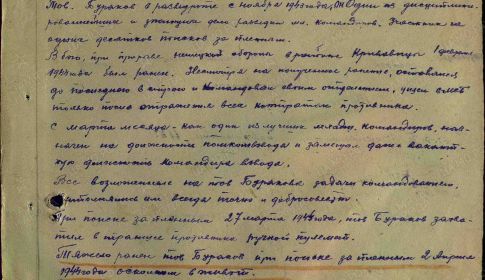 Тов. Бураков в разведроте с ноября 1943 года, Один из дисциплини-
рованнейших и знающих дело разведки мл. командиров. Участник не
одного десятка поисков за пленным.
В бою, при прорыве немецкой обороны в районе 1 февраля
1944 был ранен. Несмотря на полученное ранение, оставался
до последнего в строю и командовал своим отделением, ушел с
только после отражения всех контратак противника.
С марта месяца - как один из лучших младш. командиров, наз-
начен на должность помкомвзвода и замещал даже вакант-
ную должность командира взвода.
Все возложенные на тов Буракова задачи командованием,
выполнялись им всегда точно и добросовестно.
При поиске за пленным 27 марта 1944 года, тов Бураков захва-
тил в траншее противника ручной пулемет.
Тяжело ранен тов Бураков при поиске за пленным 2 Апреля
1944 года осколком в живот.